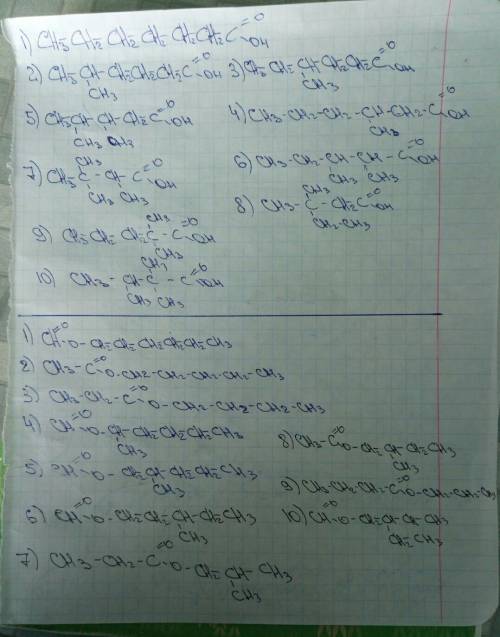 1) CH3 CH2 CH2 CH2 CH2 CH2 C =O OH
2) CH3 CH- CH2 CH2 CH2 C =O OH 3) CH3 CH2 CH CH2 CH2 C =O OH
CH3 CH3
5) CH3 CH- CH- CH2 C =O OH 4) CH3-CH2-CH2-CH-CH2-C =O OH
CH3 CH3 CH3
CH3
7) CH3 C - CH - C =O OH 6) CH3-CH2-CH-CH-C =O OH
CH3 CH3 CH3 CH3
CH3
8) CH3-C-CH2C =O OH
CH2-CH3
CH3
9) CH3 CH2 CH2 C - C =O OH
CH3
CH3
10) CH3- CH-C - C =O OH
CH3 CH3
1) CH =O O- CH2-CH2-CH2-CH2-CH2-CH3
2) CH3-C =O O-CH2-CH2-CH2-CH2-CH3
3) CH3-CH2-C =O O-CH2-CH2-CH2-CH3
4) CH =O O-CH-CH2-CH2-CH2-CH3
CH3
8) CH3-C =O O-CH2-CH-CH2-CH3
CH3
5) CH =O O- CH2-CH-CH2-CH2-CH3
CH3
9) CH3-CH2-CH2-C =O O-CH2-CH2-CH3
6) CH =O O- CH2-CH2-CH-CH2-CH3
CH3
10) CH =O O-CH2-CH2-CH-CH3
CH2-CH3
7) CH3-CH2-C =O O-CH2-CH-CH3
CH3